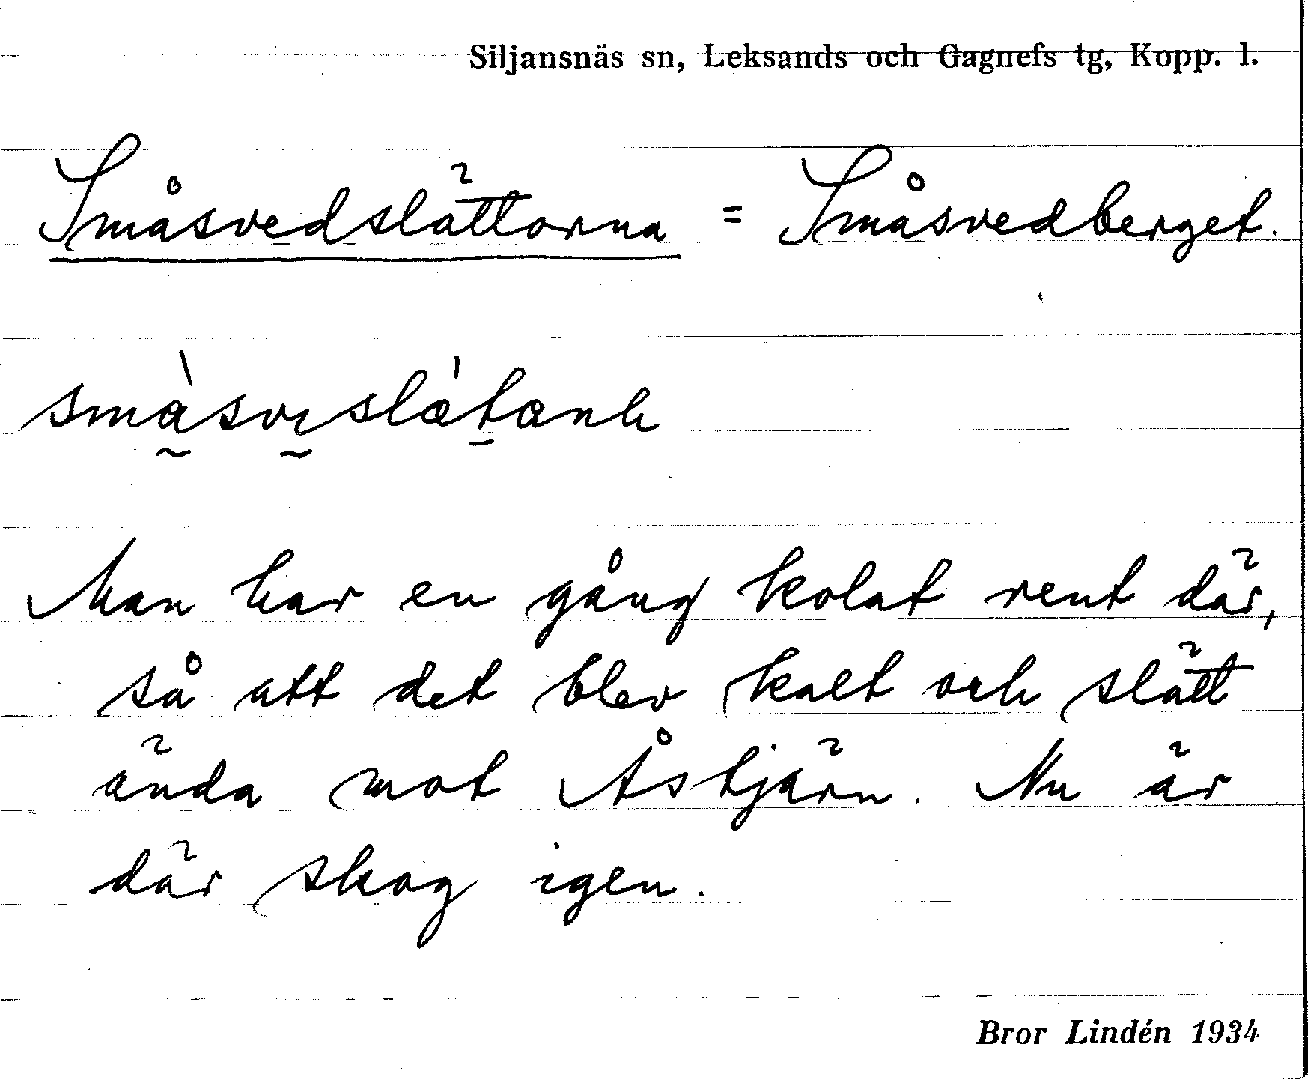 Siljansnäs sn, Leksands och Gagnefs tg, Kopp. l.
Småsvedslättorna = Småsvedberget.
Man har en gång kolat rent där,
så att det blev kalt och slätt
ända mot Åstjärn. Nu är
där skog igen.
Bror Lindén 1934